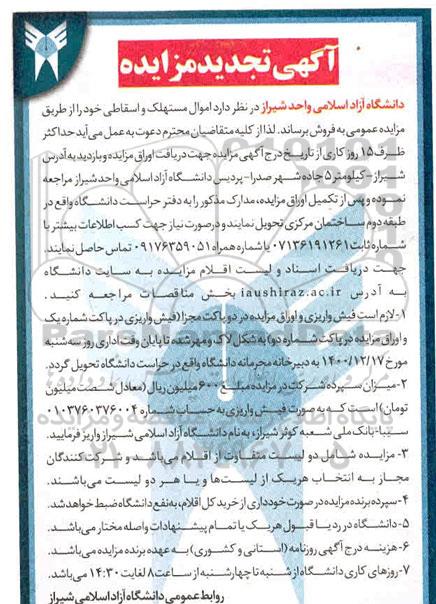 آگهی تجدید مزایده
دانشگاه آزاد اسلامی واحد شیراز در نظر دارد اموال مستهلک و اسقاطی خود را از طریق
مزایده عمومی به فروش برساند. لذا از کلیه متقاضیان محترم دعوت به عمل می‌آید حداکثر
ظرف ۱۵ روز کاری از تاریخ درج آگهی مزایده جهت دریافت اوراق مزایده و بازدید به آدرس
شیراز - کیلومتر ۵ جاده شهر صدرا - پردیس دانشگاه آزاد اسلامی واحد شیراز مراجعه
نموده و پس از تکمیل اوراق مزایده، مدارک مذکور را به دفتر حراست دانشگاه واقع در
طبقه دوم ساختمان مرکزی تحویل نمایند و در صورت نیاز جهت کسب اطلاعات بیشتر با
شماره ثابت ۰۷۱۳۶۱۹۱۲۶۱ یا شماره همراه ۰۹۱۷۶۳۵۹۰۵۱ تماس حاصل نمایند.
جهت دریافت اسناد و لیست اقلام مزایده به سایت دانشگاه
به آدرس iaushiraz.ac.ir بخش مناقصات مراجعه کنید.
۱- لازم است فیش واریزی و اوراق مزایده در دو پاکت مجزا (فیش واریزی در پاکت شماره یک
و اوراق مزایده در پاکت شماره دو) به شکل لاک و مهر شده تا پایان وقت اداری روز سه شنبه
مورخ ۱۴۰۰/۱۲/۱۷ به دبیرخانه محرمانه دانشگاه واقع در حراست دانشگاه تحویل گردد.
۲- میزان سپرده شرکت در مزایده مبلغ ۶۰۰ میلیون ریال (معادل شصت میلیون
تومان) است که به صورت فیش واریزی به حساب شماره ۰۱۰۳۷۶۰۳۷۶۰۰۴
سیبا - بانک ملی شعبه کوثر شیراز، به نام دانشگاه آزاد اسلامی شیراز واریز فرمایید.
۳- مزایده شامل دو لیست متفاوت از اقلام می‌باشد و شرکت کنندگان
مجاز به انتخاب هریک از لیست‌ها و یا هر دو لیست می‌باشند.
۴- سپرده برنده مزایده در صورت خودداری از خرید کل اقلام، به نفع دانشگاه ضبط خواهد شد.
۵- دانشگاه در رد یا قبول هر یک یا تمام پیشنهادات واصله مختار می‌باشد.
۶- هزینه درج آگهی روزنامه (استانی و کشوری) به عهده برنده مزایده می‌باشد.
۷- روزهای کاری دانشگاه از شنبه تا چهارشنبه از ساعت ۸ لغایت ۱۴:۳۰ می‌باشد.
روابط عمومی دانشگاه آزاد اسلامی شیراز